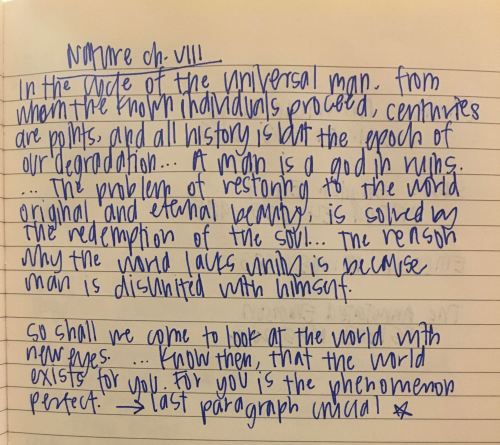 Nature ch. VIII
In the cycle of the universal man, from
whom the known individuals proceed, centuries
are points, and all history is but the epoch of
our degradation... A man is a god in ruins.
... The problem of restoring to the world
original and eternal beauty, is solved by
the redemption of the soul... The reason
why the world lacks unity is because
man is disunited with himself.
So shall we come to look at the world with
new eyes. ... Know then, that the world
exists for you. For you is the phenomenon
perfect. → last paragraph crucial ☆